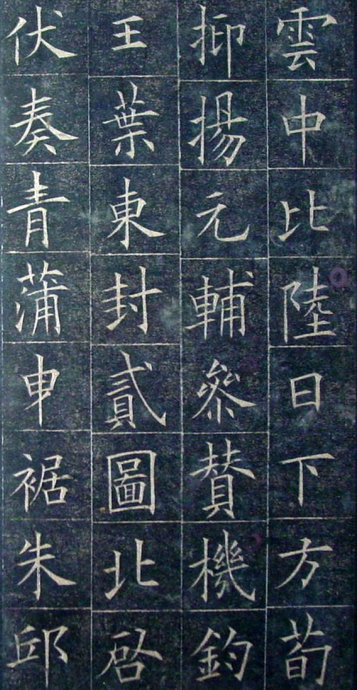 雲中比陸日下方荀
抑揚元輔叅賛機鈞
王葉東封貳圖北啓
伏奏青蒲申裾朱邱